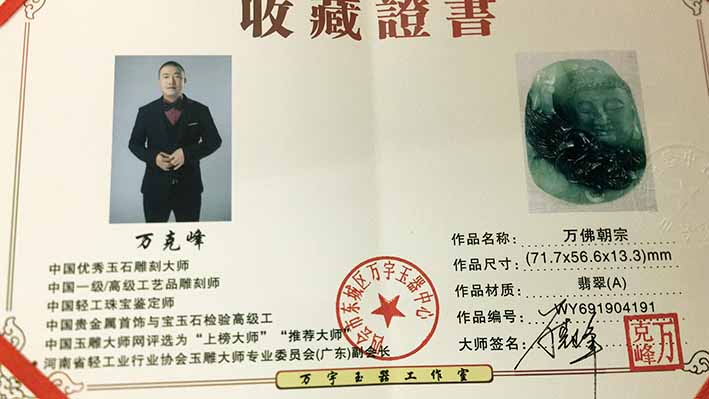 收藏證書
万克峰
中国优秀玉石雕刻大师
中国一级/高级工艺品雕刻师
中国轻工珠宝鉴定师
中国贵金属首饰与宝玉石检验高级工
中国玉雕大师网评选为“上榜大师”“推荐大师”
河南省轻工业行业协会玉雕大师专业委员会(广东)副会长
四会市东城区万宇玉器中心
作品名称: 万佛朝宗
作品尺寸: (71.7x56.6x13.3)mm
作品材质: 翡翠(A)
作品编号: WY691904191
大师签名:
万克峰
万宇玉器工作室